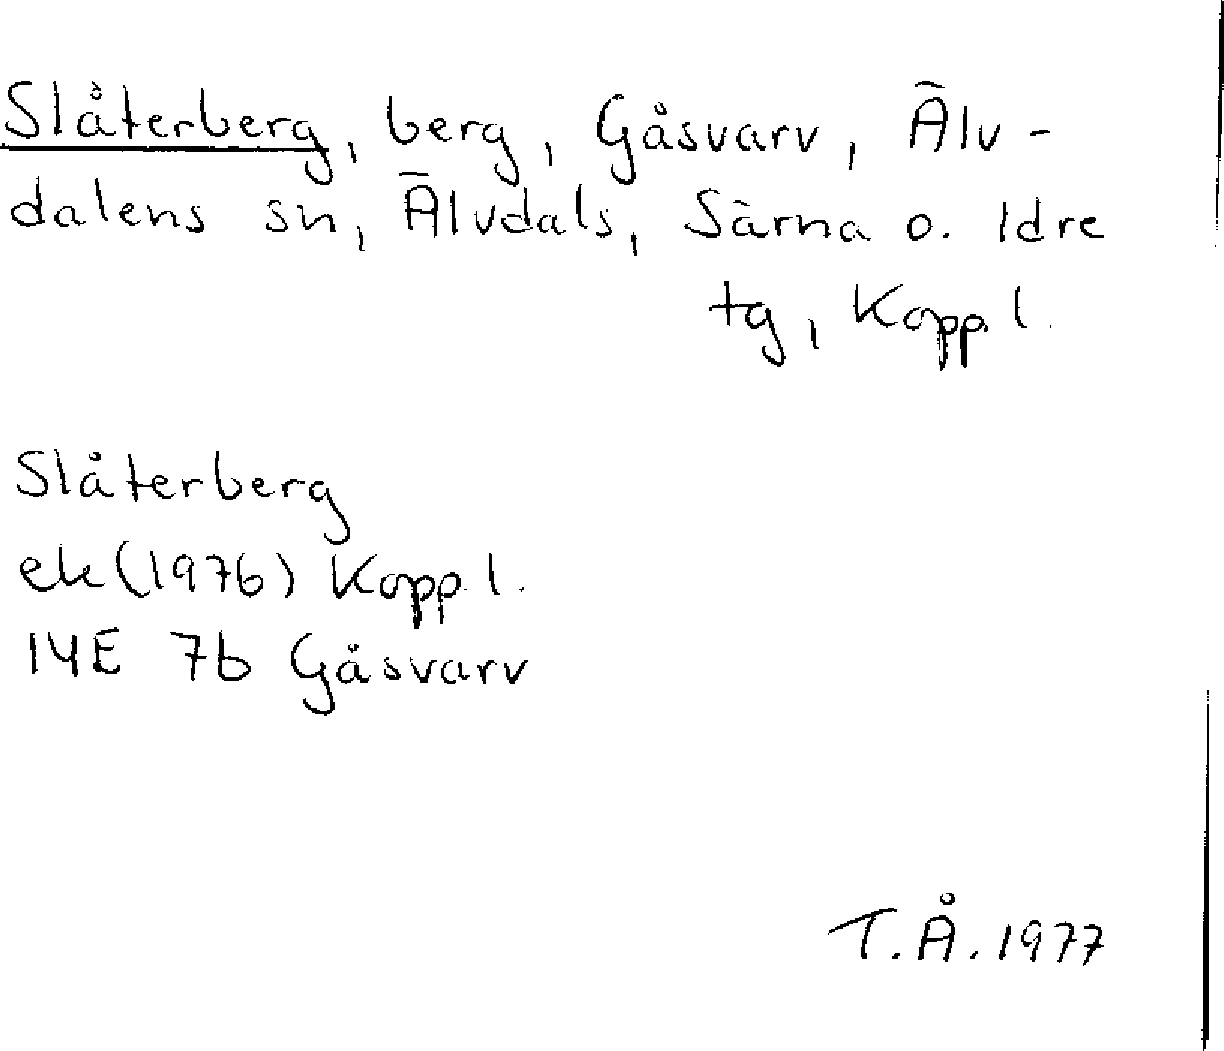 Slåterberg, berg, Gåsvarv, Älv-
dalens sn, Älvdals, Särna o. Idre
tg, Kopp. l.
Slåterberg
ek (1976) Kopp. l.
14E 7b Gåsvarv
T.Å. 1977